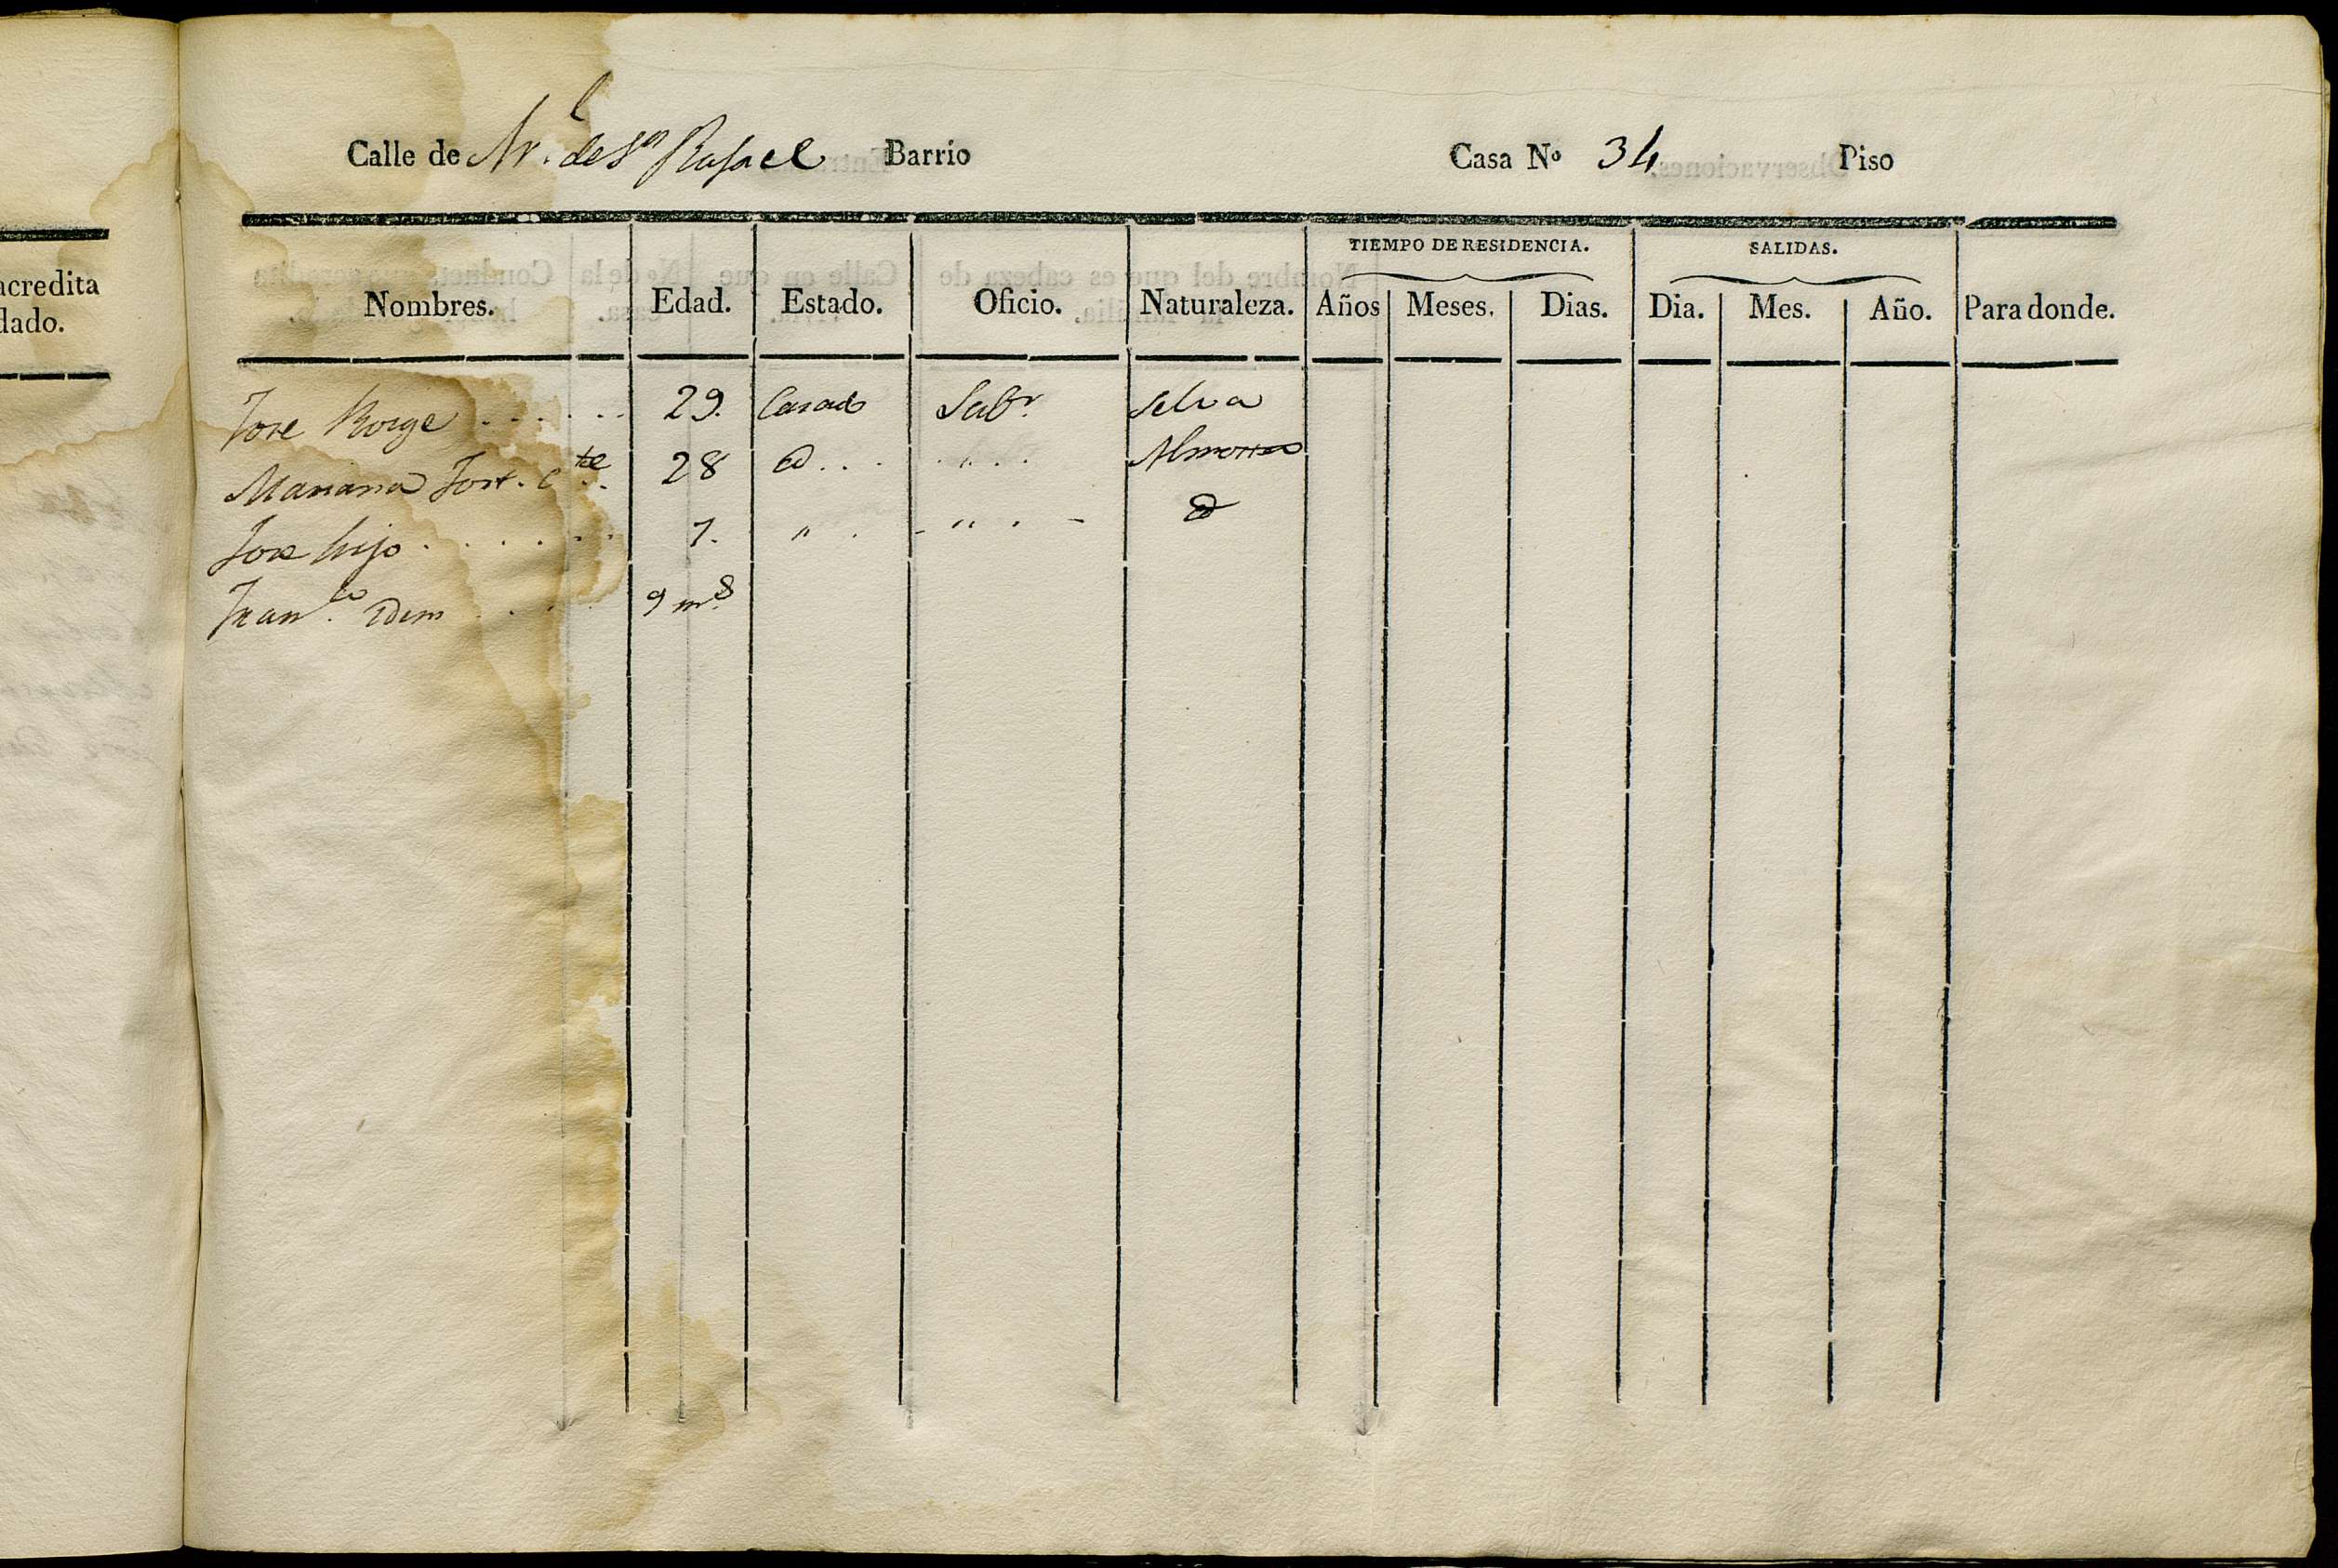 acredita
dado.
Calle de Arr.l de Sn Rafael Barrio Casa No 34 Piso
TIEMPO DE RESIDENCIA. SALIDAS.
Nombres. Edad. Estado. Oficio. Naturaleza. Años Meses. Dias. Dia. Mes. Año. Para donde.
Jose Borge . . . . . . 29. Casado Labr. Selva
Mariana Fort. C.te . . 28 id . . . " . . Almoster
Jose hijo . . . . . . . 7. " . - " . - id
Fran.co idem . . . . 9 m.s